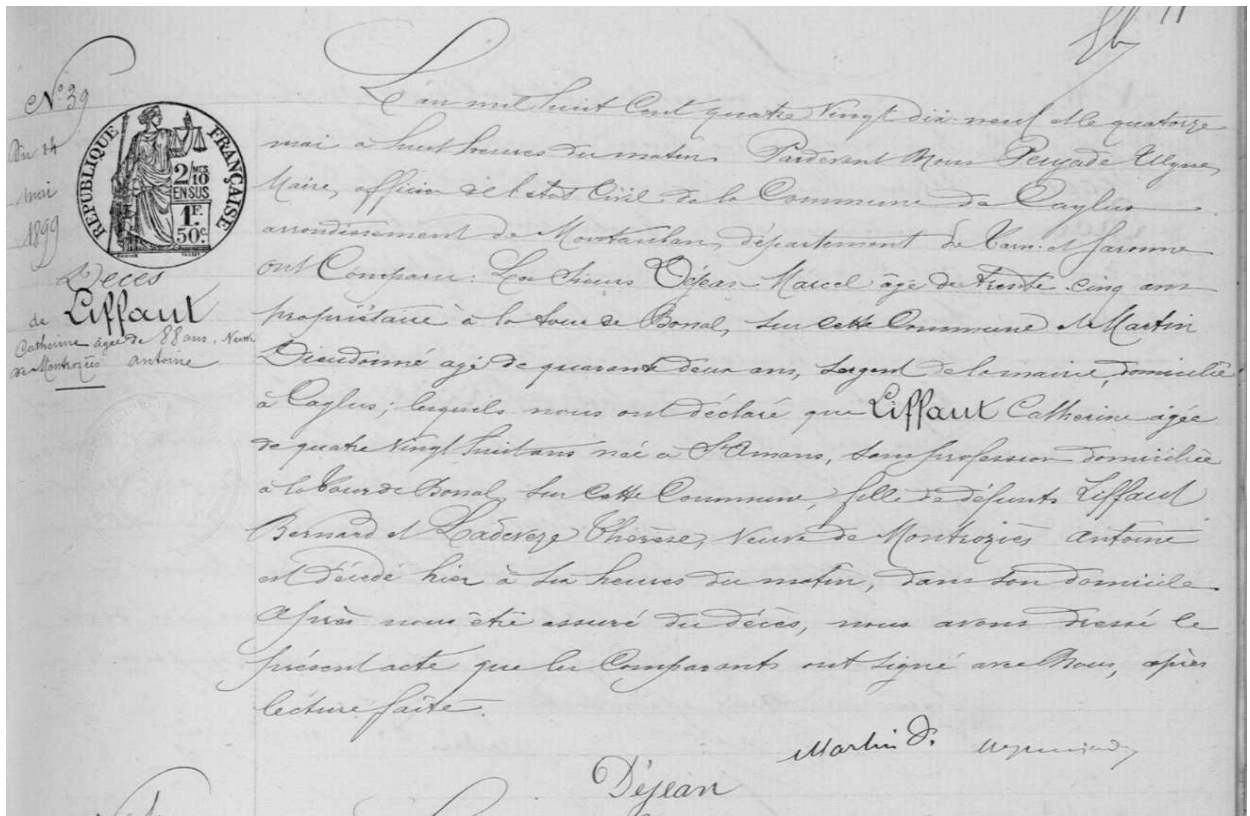 N° 39
Du 14
mai
1899
Décès
de Liffaut
Catherine agée de 88 ans, Veuve
de Montroziès antoine
RÉPUBLIQUE FRANÇAISE
2/10 EN SUS
1F. 50c.
L'an mil huit Cent quatre Vingt dix-neuf et le quatorze
mai à huit heures du matin. Pardevant Nous
Maire, officier de l'état Civil de la Commune de Caylus
arrondissement de Montauban, département de Tarn-et-Garonne
ont Comparu: Les sieurs Déjean Marcel âgé de trente-cinq ans
propriétaire à la tour de Bonal, sur cette Commune et Martin
Dieudonné agé de quarante deux ans, sergent de la mairie, domicilié
à Caylus; lesquels nous ont déclaré que Liffaut Catherine agée
de quatre Vingt huit ans née à St Amans, sans profession domiciliée
à la Tour de Bonal, sur cette Commune, fille de défunts Liffaut
Bernard et Ladevèze Thérèse, Veuve de Montroziès antoine
est décédé hier à six heures du matin, dans son domicile
Après nous être assuré du décès, nous avons dressé le
présent acte que les Comparants ont signé avec Nous, après
lecture faite.
Martin D.
Déjean